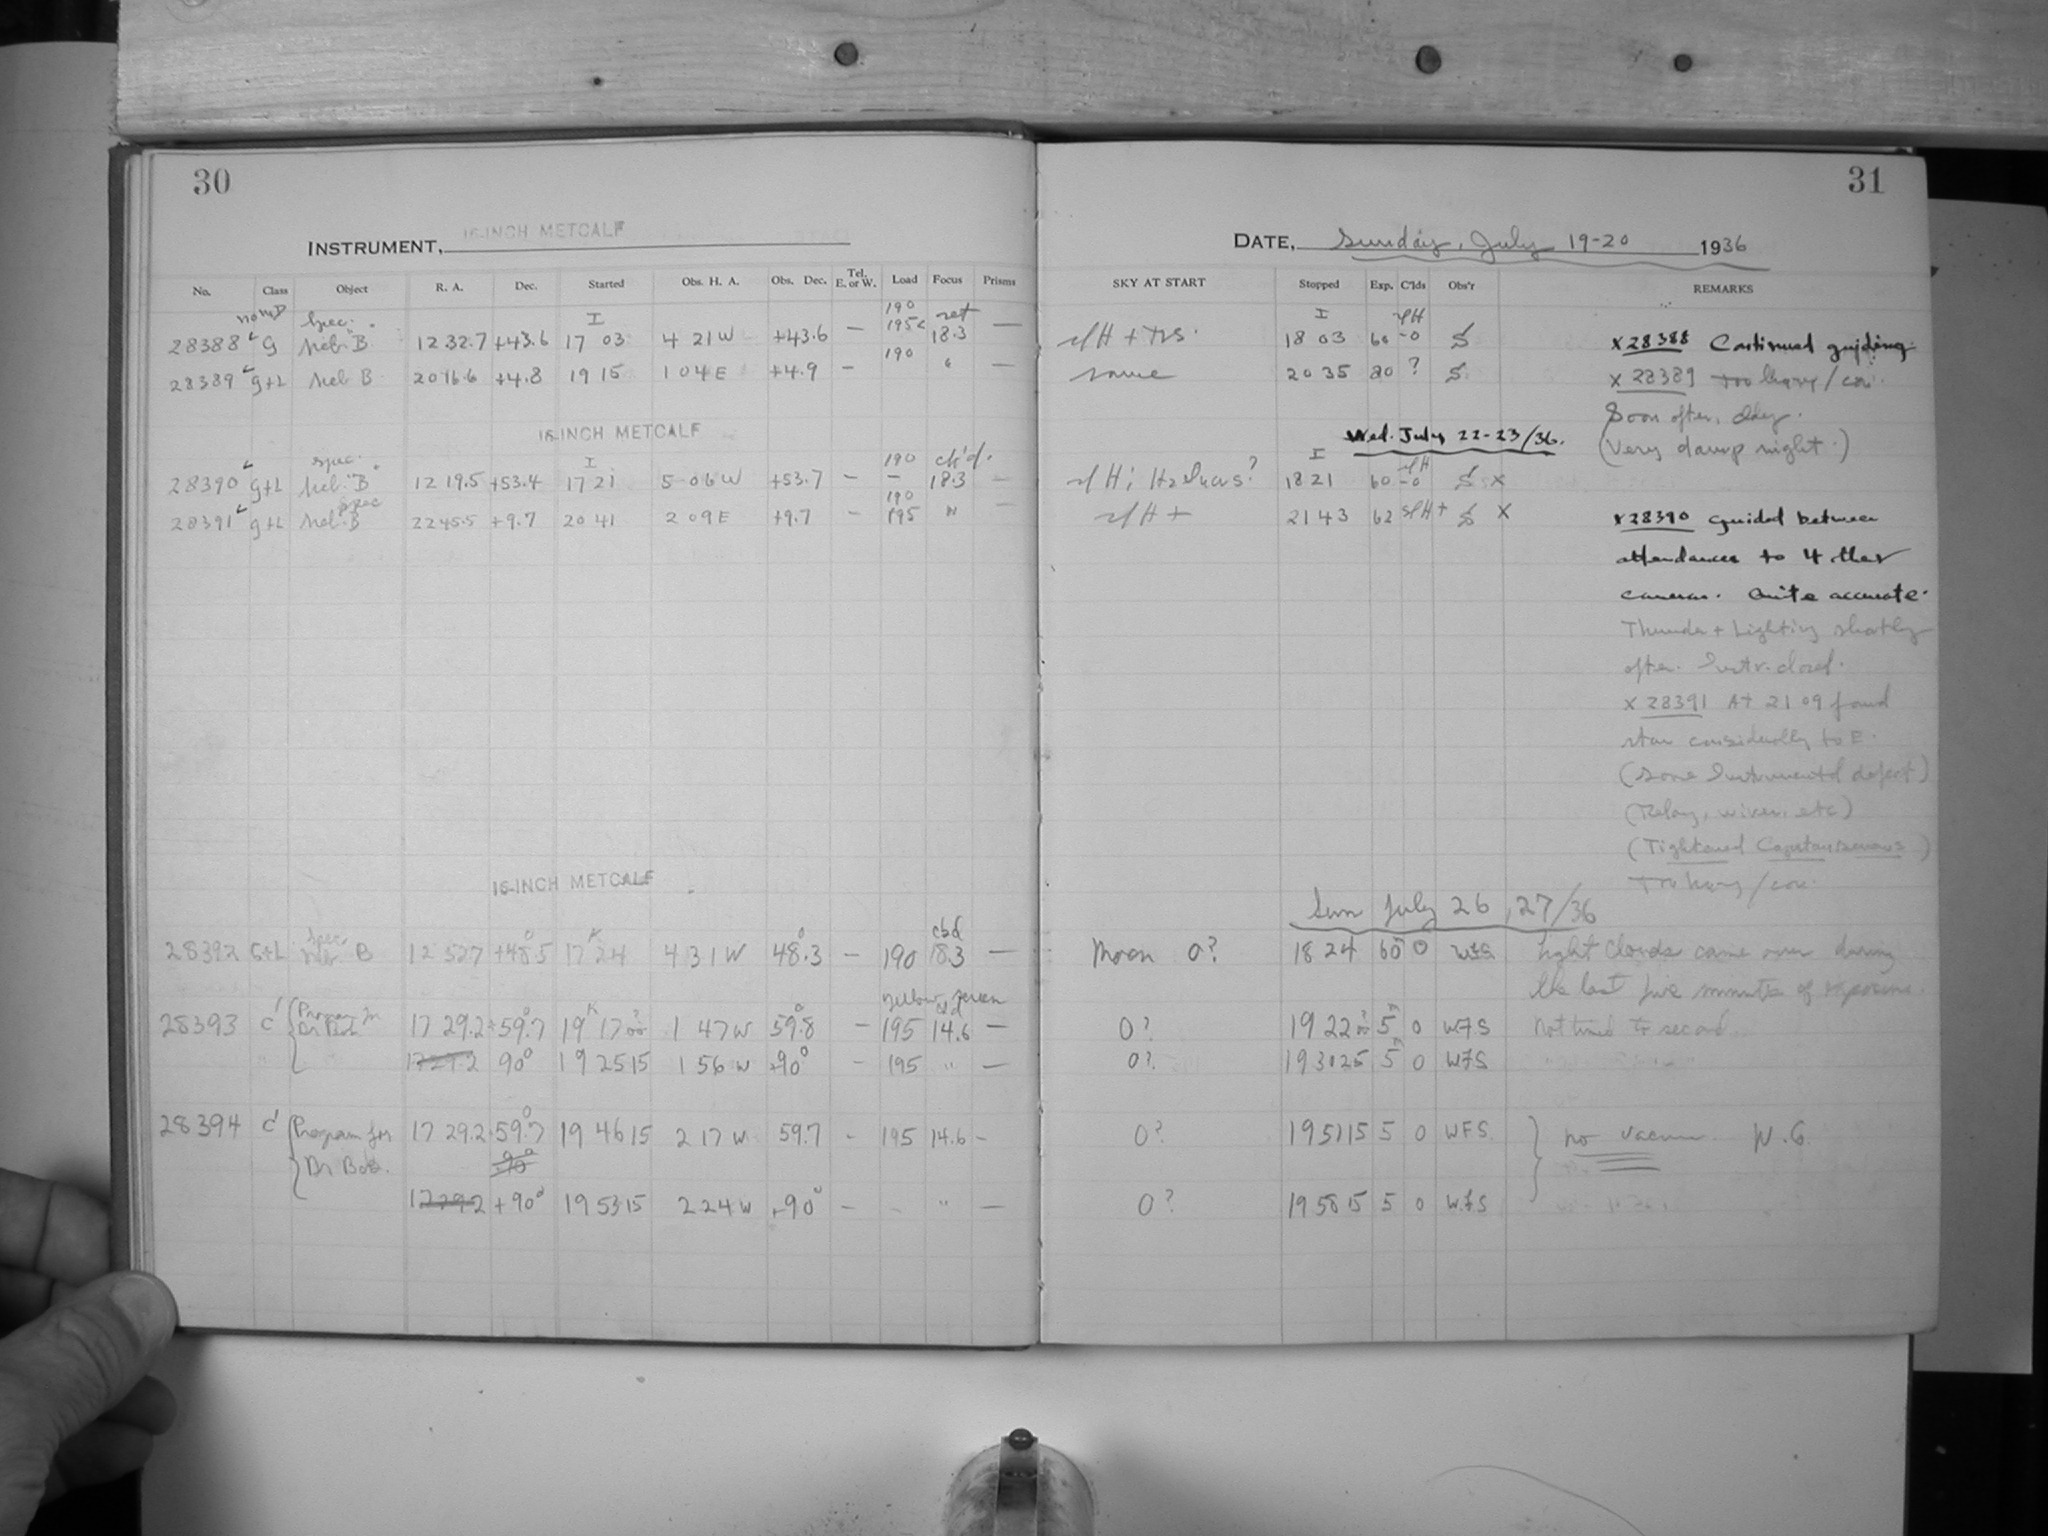 30
INSTRUMENT, 16-INCH METCALF
No. Class Object R. A. Dec. Started Obs. H. A. Obs. Dec. Tel. E. or W. Load Focus Prisms
Spec. I 190 set
28388 G Neb. B 12 32.7 +43.6 17 03 4 21 W +43.6 — 195 18.3 —
190
28389 G+L Neb B 20 16.6 +4.8 19 15 1 04 E +4.9 — " —
16-INCH METCALF
spec. I 190 ch'd.
28390 G+L Neb. B 12 19.5 +53.4 17 21 5 06 W +53.7 — — 18.3 —
spec 190
28391 G+L Neb. B 22 45.5 +9.7 20 41 2 09 E +9.7 — 195 "
16-INCH METCALF
Spec. cbd
28392 G+L B 12 52.7 +48.5 17 24 4 31 W 48.3 — 190 18.3 —
Yellow screen
28393 C' Program for Dr Bok 17 29.2 +59.7 19 17 00 1 47 W 59.8 — 195 14.6 —
17 29.2 90° 19 25 15 1 56 W +90° — 195 " —
28394 C' Program for 17 29.2 +59.7 19 46 15 2 17 W 59.7 - 195 14.6 -
Dr Bok. 90°
17 29.2 +90° 19 53 15 2 24 W +90° — " —
31
DATE, Sunday, July 19-20 1936
SKY AT START Stopped Exp. C'lds Obs'r REMARKS
I
+ 18 03 60 -0 S x 28388 Continued guiding.
same 20 35 80 ? S. x 28389 Too heavy/
Soon after, 
(Very damp night.)
Wed. July 22-23/36.
I
18 21 60 -0 S x
+ 21 43 62 + S x
x 28390 guided between
attendances to 4 other
cameras. Quite accurate.
Thunder + Lighting shortly
after. Instr. closed.
x 28391 At 21 09 found
star considerably to E.
(Some Instrumental defect)
(Relay, wires, etc)
(Tightened )
Too heavy/
Sun July 26, 27/36
Moon 0? 18 24 60 0 WFS Light Clouds came over during
the last five minutes of exposure.
0? 19 22 00 5 0 W.F.S Not timed to second.
0? 19 30 25 5 0 WFS
0? 19 51 15 5 0 WFS. no vacuum. N.G.
0? 19 58 15 5 0 W.F.S